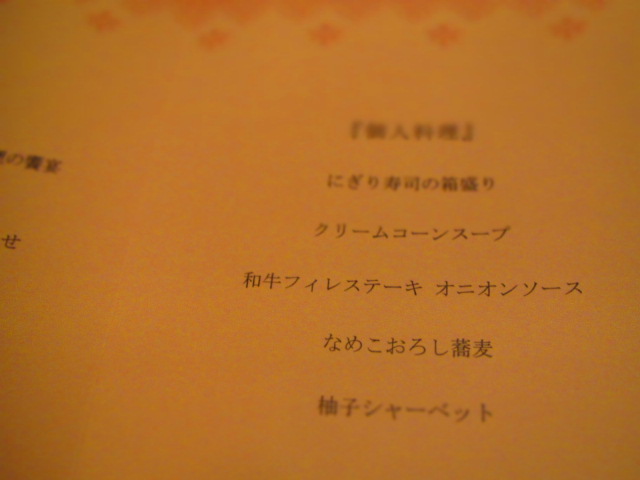 の饗宴
せ
『個人料理』
にぎり寿司の箱盛り
クリームコーンスープ
和牛フィレステーキ オニオンソース
なめこおろし蕎麦
柚子シャーベット